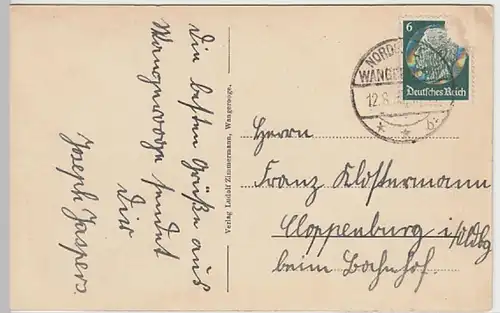 Die besten Grüße aus
Wangerooge sendet
Dir
Joseph Jaspers.
Verlag Ludolf Zimmermann, Wangerooge.
6
Deutsches Reich
12.8.
Herrn
Franz Klostermann
Cloppenburg i/Oldbg
beim Bahnhof.